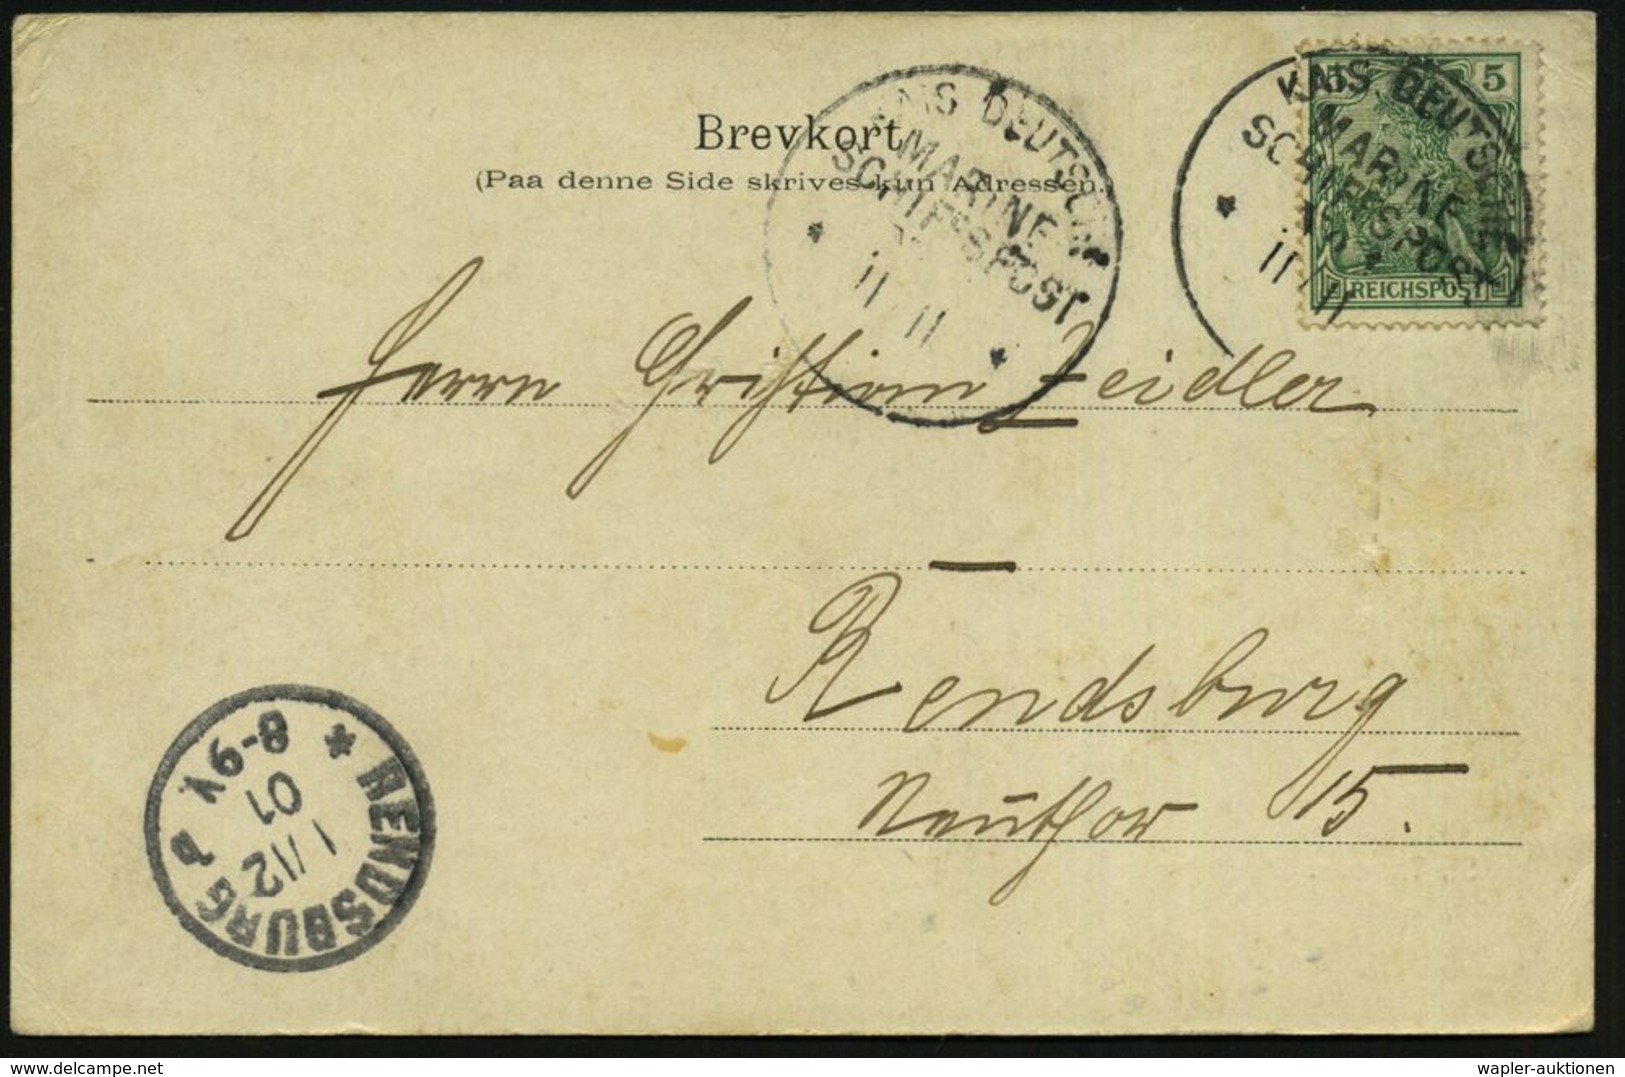 Brevkort
(Paa denne Side skrives kun Adressen.)
KAIS. DEUTSCHE
MARINE
SCHIFFSPOST
11 11
KAIS. DEUTSCHE
MARINE
SCHIFFSPOST
11 11
5 5
REICHSPOST
Herrn Christian Zeidler
Rendsburg
Neuthor 15.
RENDSBURG
1/12
01
8-9V
wapler-auktionen